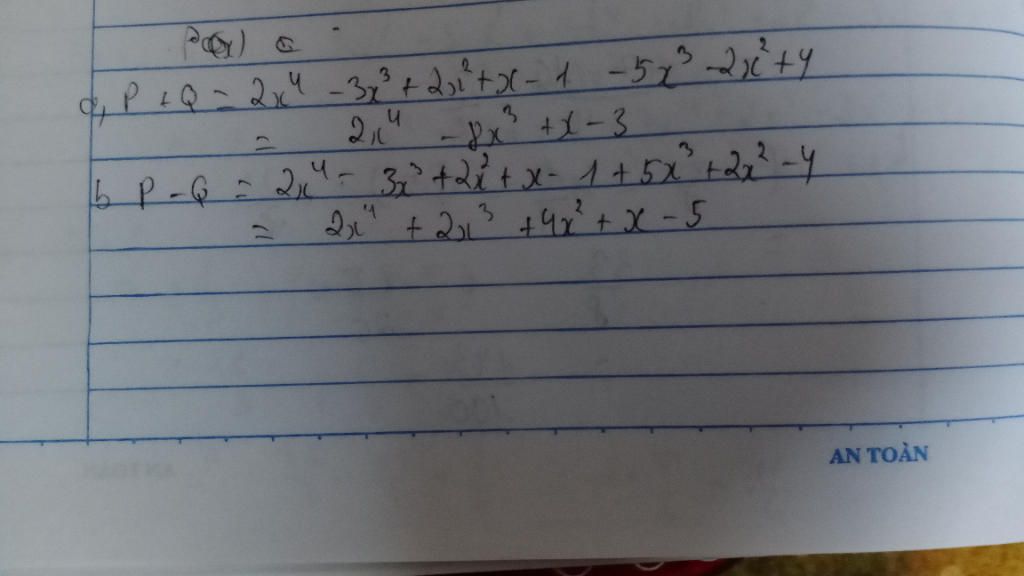 P(x) =
a, P + Q = 2x⁴ - 3x³ + 2x² + x - 1 - 5x³ - 2x² + 4
= 2x⁴ - 8x³ + x - 3
b P - Q = 2x⁴ - 3x³ + 2x² + x - 1 + 5x³ + 2x² - 4
= 2x⁴ + 2x³ + 4x² + x - 5
AN TOÀN